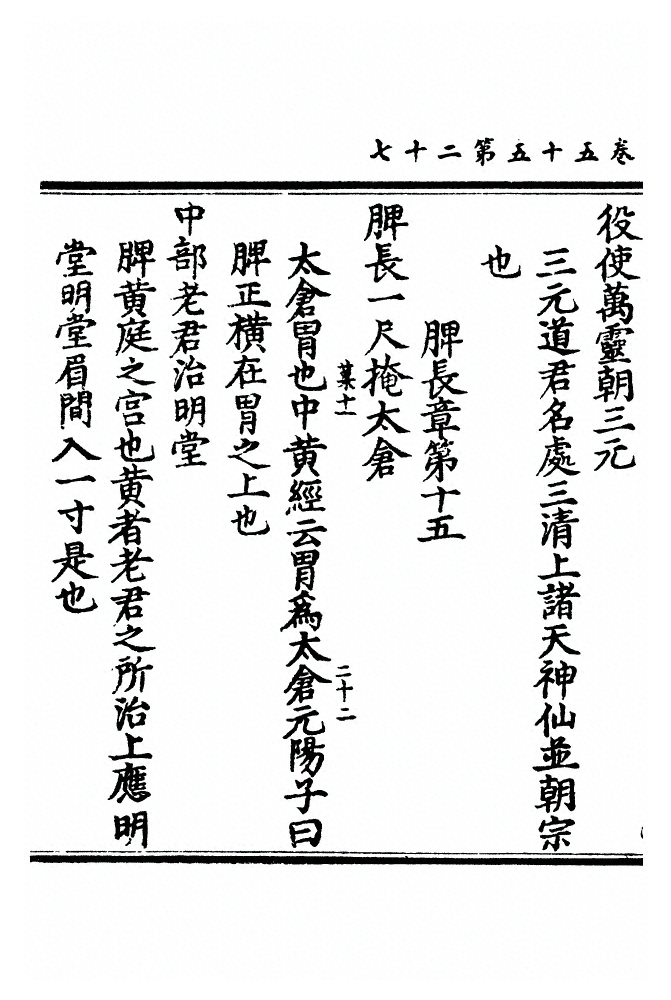 卷五十五第二十七
役使萬靈朝三元
三元道君名處三清上諸天神仙並朝宗
也
脾長章第十五
脾長一尺掩太倉
菓十一
二十二
太倉胃也中黄經云胃爲太倉元陽子曰
脾正横在胃之上也
中部老君治明堂
脾黄庭之宫也黄者老君之所治上應明
堂明堂眉間入一寸是也